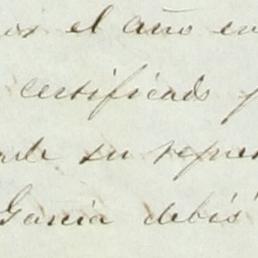 el año en
certificado
su repre
Garcia debió